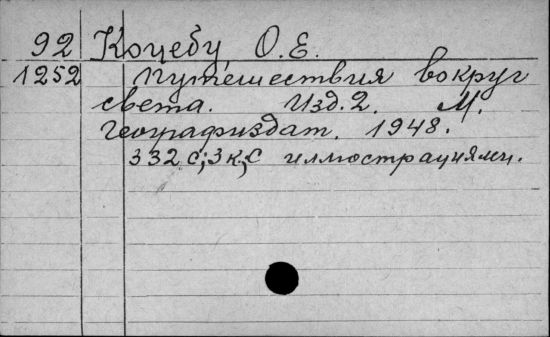 92 Коцебу О.Е.
1252 Путешествия вокруг
света. Изд. 2. М.
Географиздат. 1948.
332 с; 3 к; с иллюстрациями.